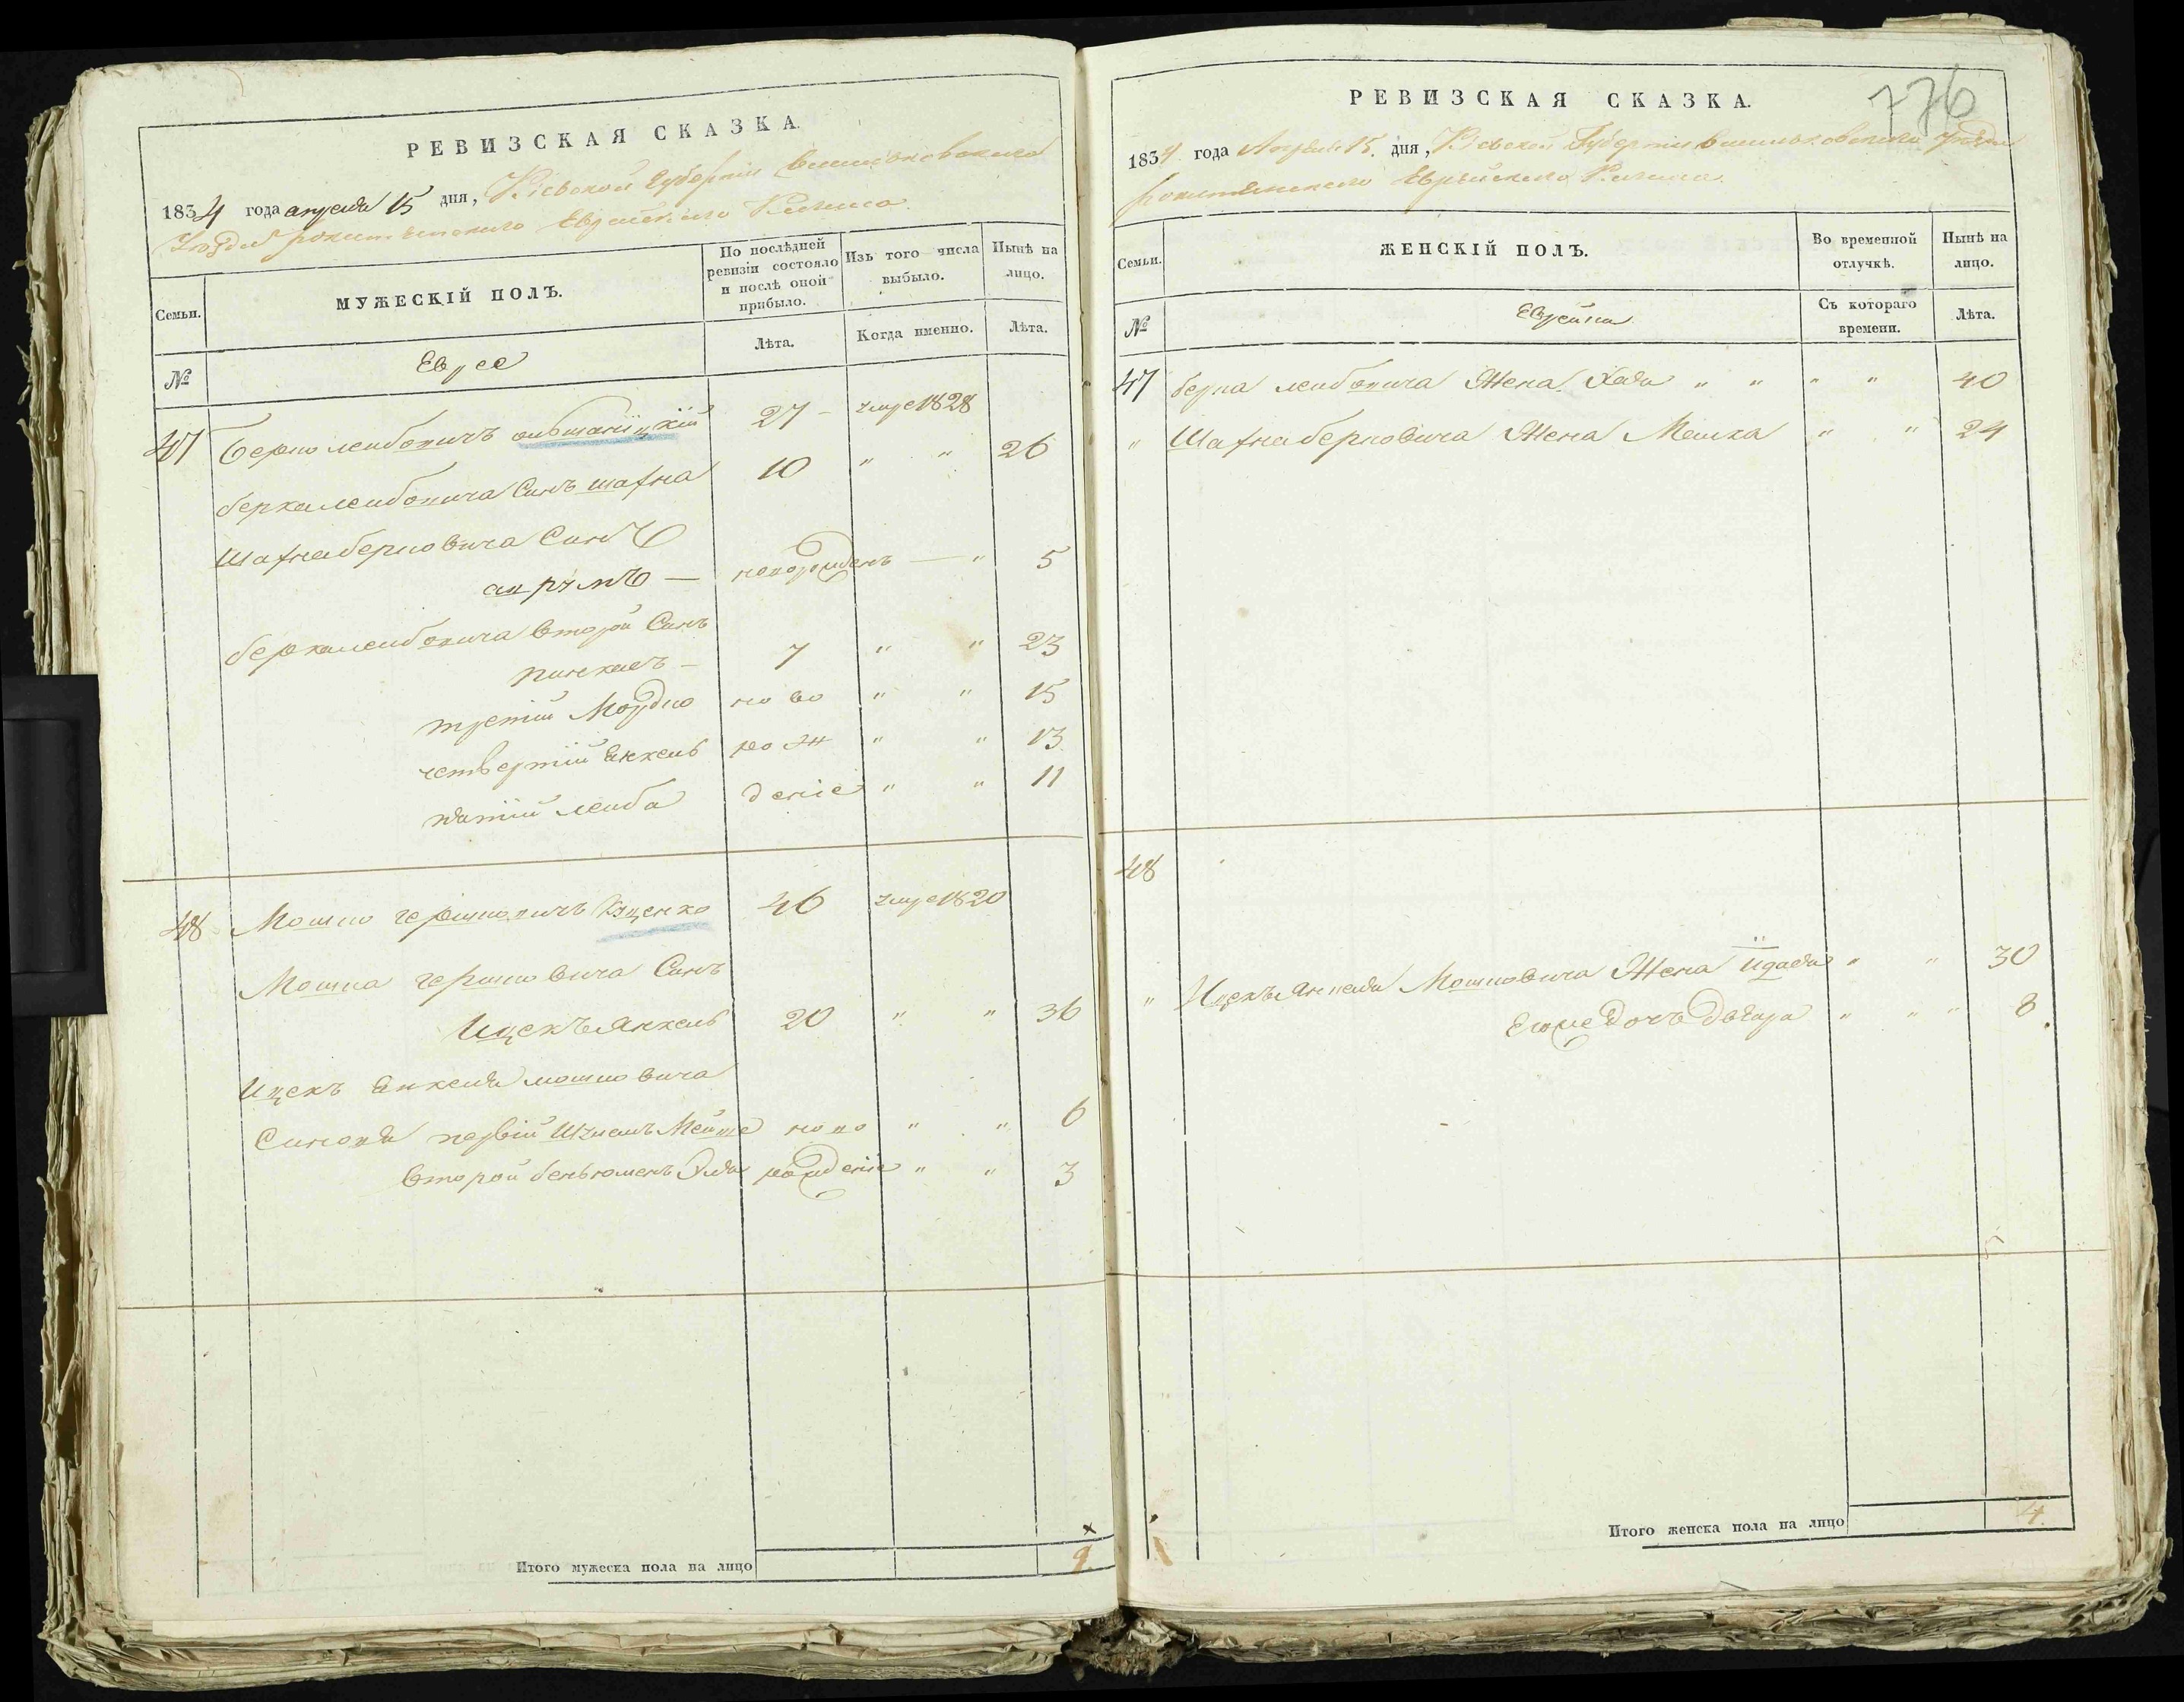 РЕВИЗСКАЯ СКАЗКА.
1834 года апреля 15 дня, Кіевской Губерніи Васильковского
Уезда рокитянского Еврейского Кагала
Семьи.
МУЖЕСКІЙ ПОЛЪ.
По послѣдней ревизіи состояло и послѣ оной прибыло.
Изъ того числа выбыло.
Нынѣ на лицо.
№
Еврее
Лѣта.
Когда именно.
Лѣта.
47 Берко лейбовичъ ольшаніцкій 27 – умре 1828
берка лейбовича Синъ шахна 10 " " 26
Шахна берковича Синъ
аврумъ — новорожденъ — " 5
берка лейбовича второй Синъ
пинкасъ – 7 " " 23
третій Мордко но во " " 15
четвертій Янкель ро ж " " 13
пятій лейба деніе " " 11
48 Мошко гершковичъ Куценко 46 умре 1820
Мошка гершковича Синъ
Ицекъ Янкель 20 " " 36
Ицекъ Янкеля мошковича
Синовя первій Шмуль Мейше ново " " 6
второй беньюменъ рожденіе " " 3
Итого мужеска пола на лицо 9.
776
РЕВИЗСКАЯ СКАЗКА.
1834 года Апреля 15. дня, Кіевской Губерніи Васильковского Уезда
рокитянского Еврейского Кагала
Семьи.
ЖЕНСКІЙ ПОЛЪ.
Во временной отлучкѣ.
Нынѣ на лицо.
№
Еврейки
Съ котораго времени.
Лѣта.
47 берка лейбовича Жена Хая " " " " 40
" Шахна берковича Жена Малка " " 24
48
" Ицекъ Янкеля Мошковича Жена " " 30
Егоже Дочъ Двейра " " " 8.
Итого женска пола на лицо 4.